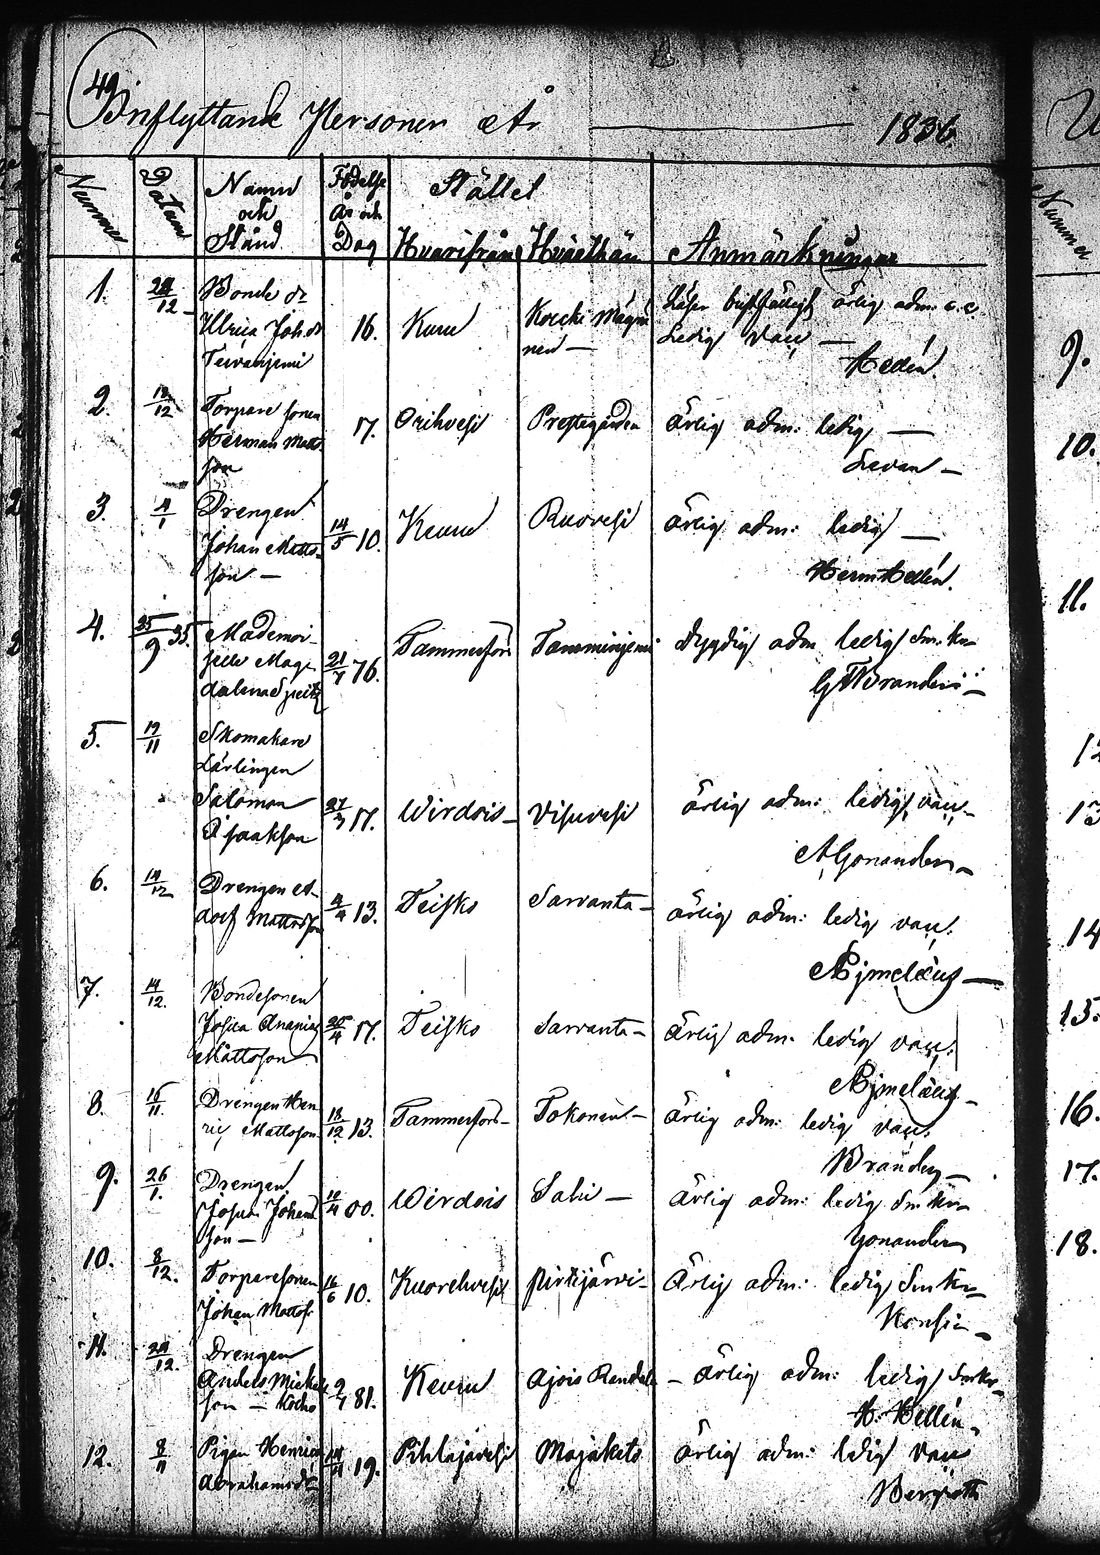 49.
Inflyttande Personer År 1836
Nummer Datum Namn och Stånd Födelse År och Dag Stället Hvarifrån Hvarthän Anmärkningar
1. 12 Bonde dr
Ulrica Joh. dr 16. Kuru
ärlig adm:
Ledig vacc
Hellén.
2. 12/12 Torpare sonen
Herman Matts
son 17. Orihvesi Prestegården ärlig adm: ledig
3. 4/1 Drengen
Johan Matts-
son 14/5 10. Keuru Ruovesi ärlig adm: ledig
Herm Hellén.
4. 25/9 35. Mademoi-
selle Mag-
dalena 21/7 76. Tammerfors Tamminjemi dygdig adm ledig
G W Brander
5. 19/11 Skomakare
Lärlingen
Salomon
Isaaksson 27/3 17. Wirdois Visuvesi ärlig adm: ledig, vacc.
A Gonander
6. 14/12 Drengen A-
dolf Mattsson 4/4 13. Teisko Savanta ärlig adm: ledig vacc.
Bjmelæus
7. 14/12. Bondesonen
Josua Ananias
Mattsson 25/4 17. Teisko Savanta ärlig adm: ledig vacc.
Bjmelæus
8. 16/11. Drengen Hen-
ric Mattsson 18/12 13. Tammerfors Tokonen ärlig adm: ledig vacc.
Brander
9. 26/1. Drengen
Josua Johans
son 10/4 00. Wirdois Salu ärlig adm: ledig
Gonander
10. 8/12. Torparesonen
Johan Matts 16/6 10. Kuorehvesi Pirkijärvi Ärlig adm: ledig
Konsin
11. 12. Drengen
Anders Mickels
son 2/7 81. Keuru Ajois ärlig adm: ledig
H. Hellén
12. 8/11 Pigan Henrica
Abrahamsdr 11 19. Pihlajavesi Majakets ärlig adm: ledig vacc
Bergroth
9.
10.
11.
12
13
14
15.
16.
17.
18.